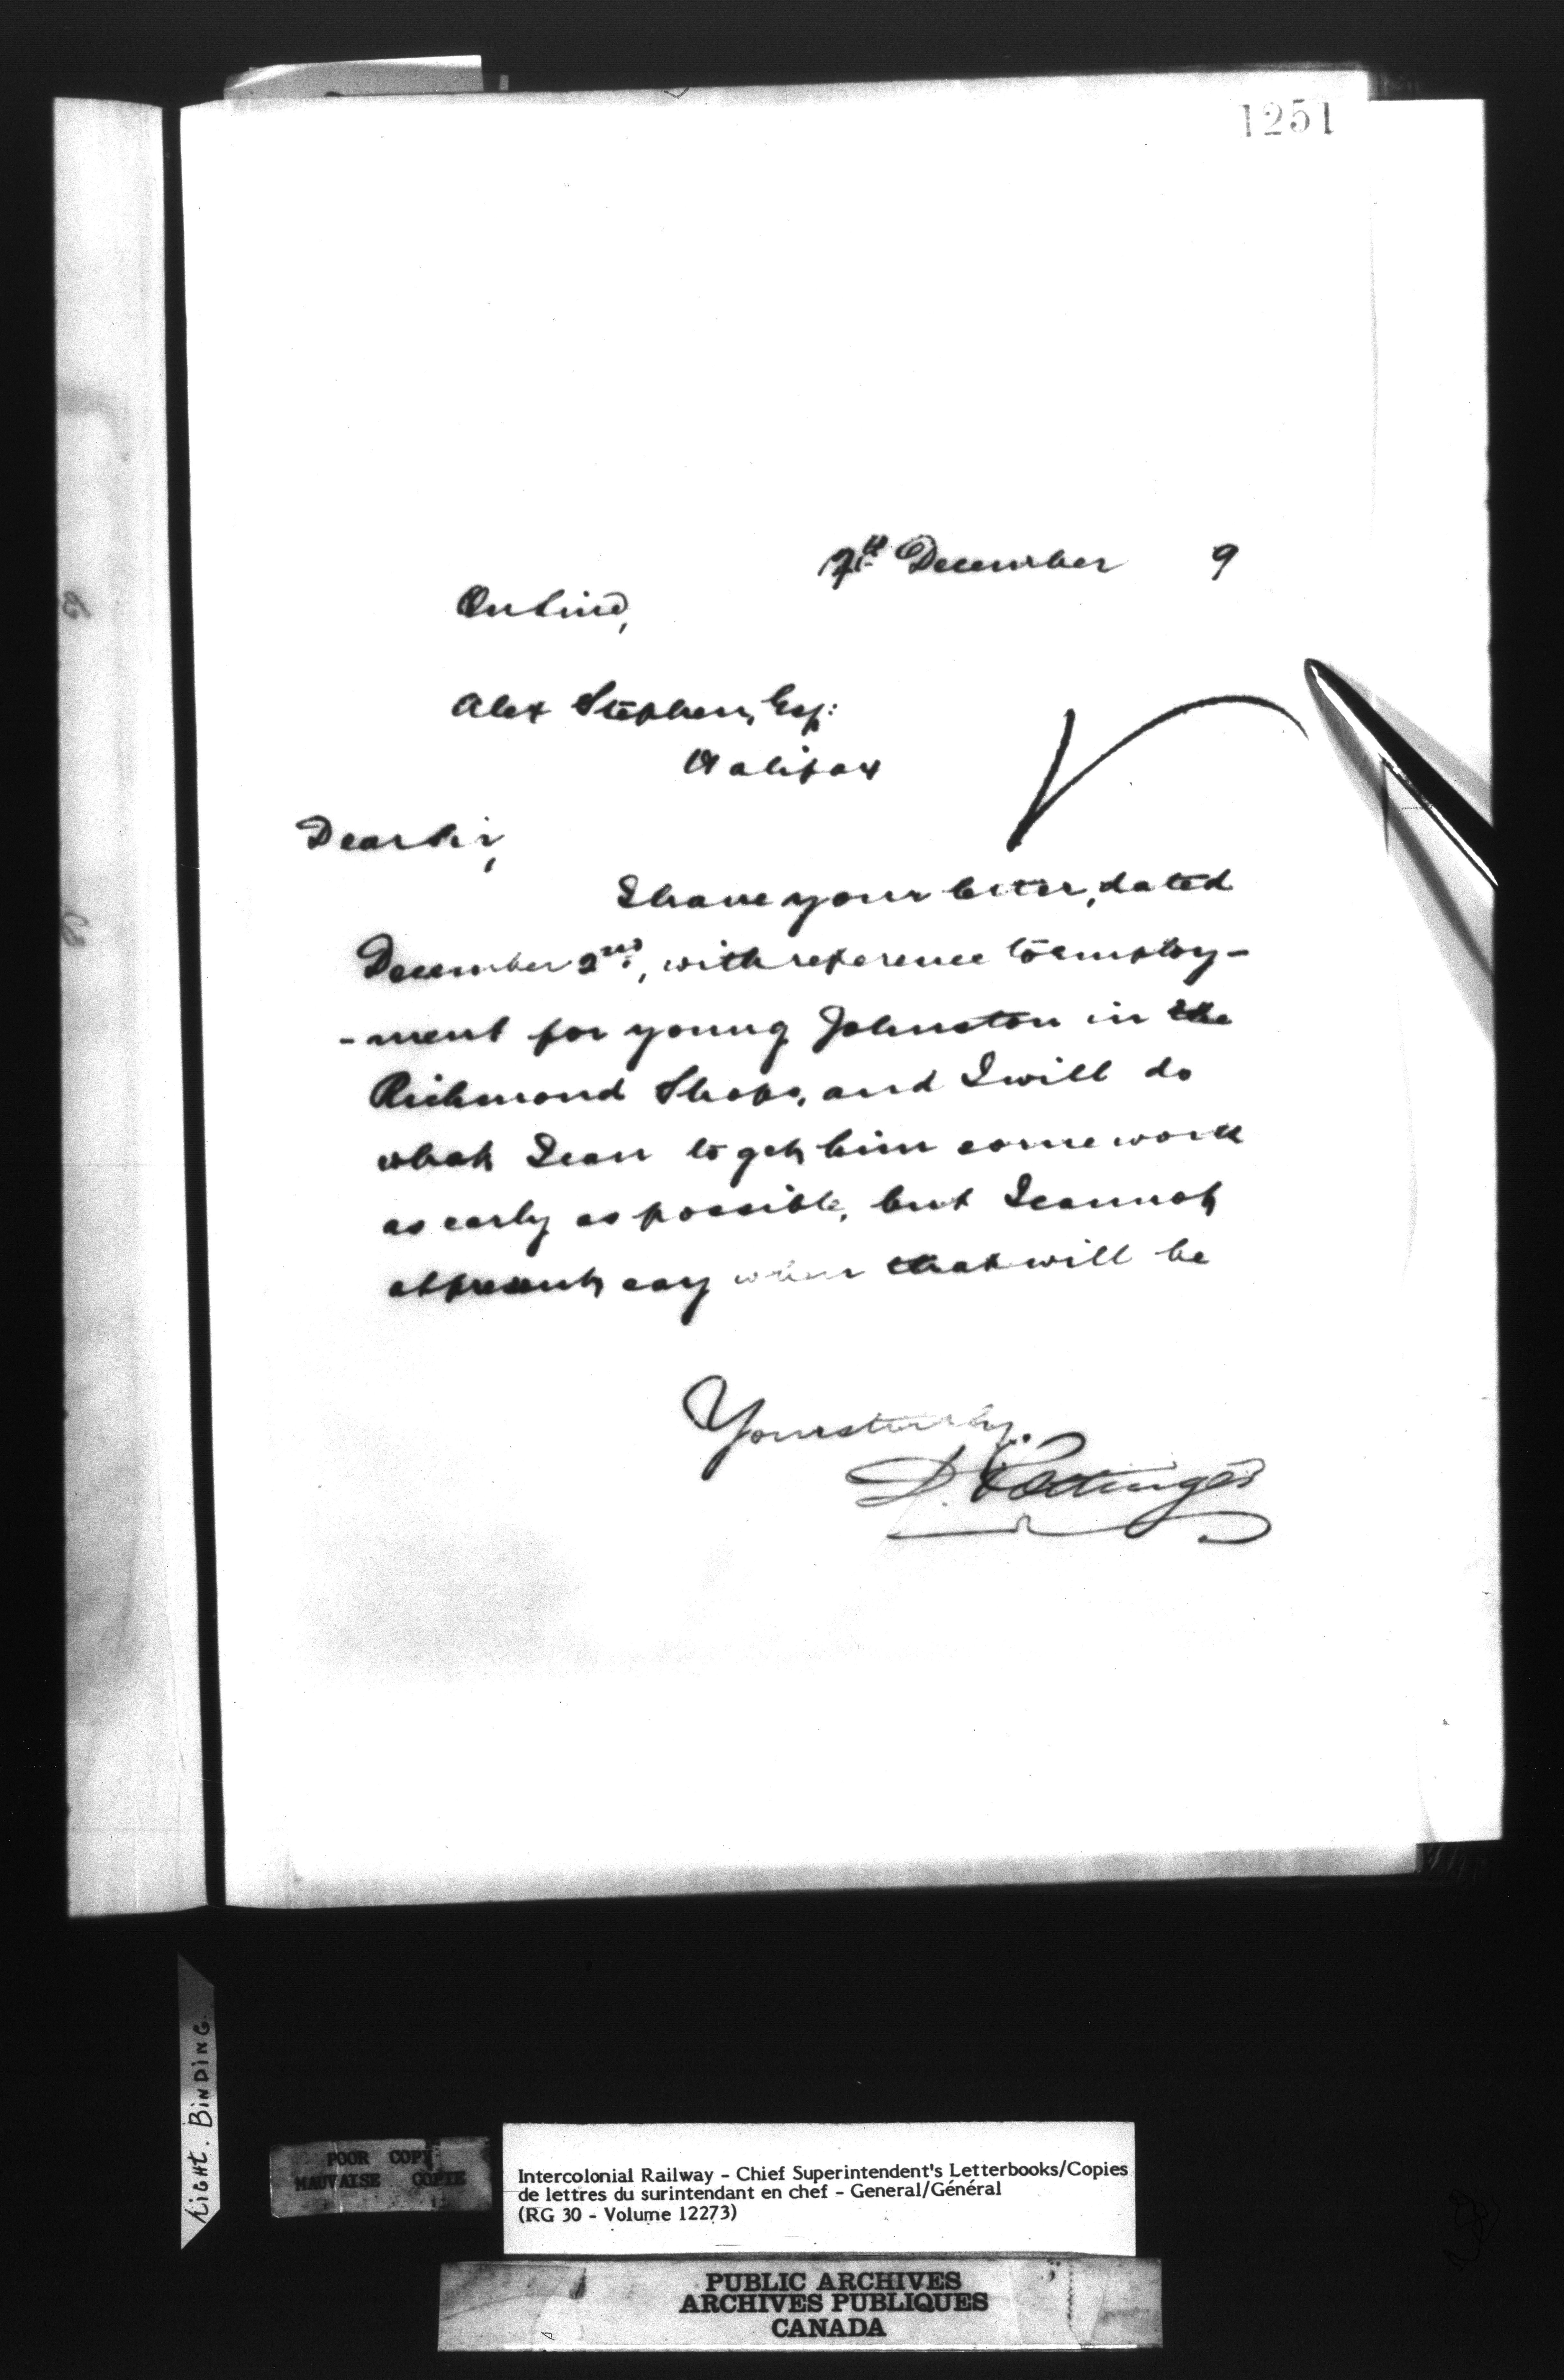 1251
7th December 9
On Line,
Alex Stephen, Esq:
Halifax
Dear Sir,
I have your letter, dated
December 2nd, with reference to employ-
-ment for young Johnston in the
Richmond Shops, and I will do
what I can to get him some work
as early as possible, but I cannot
at present say when that will be
Yours truly,
D. Pottinger
LIGHT. BINDING.
POOR COPY
MAUVAISE COPIE
Intercolonial Railway - Chief Superintendent's Letterbooks/Copies
de lettres du surintendant en chef - General/Général
(RG 30 - Volume 12273)
PUBLIC ARCHIVES
ARCHIVES PUBLIQUES
CANADA